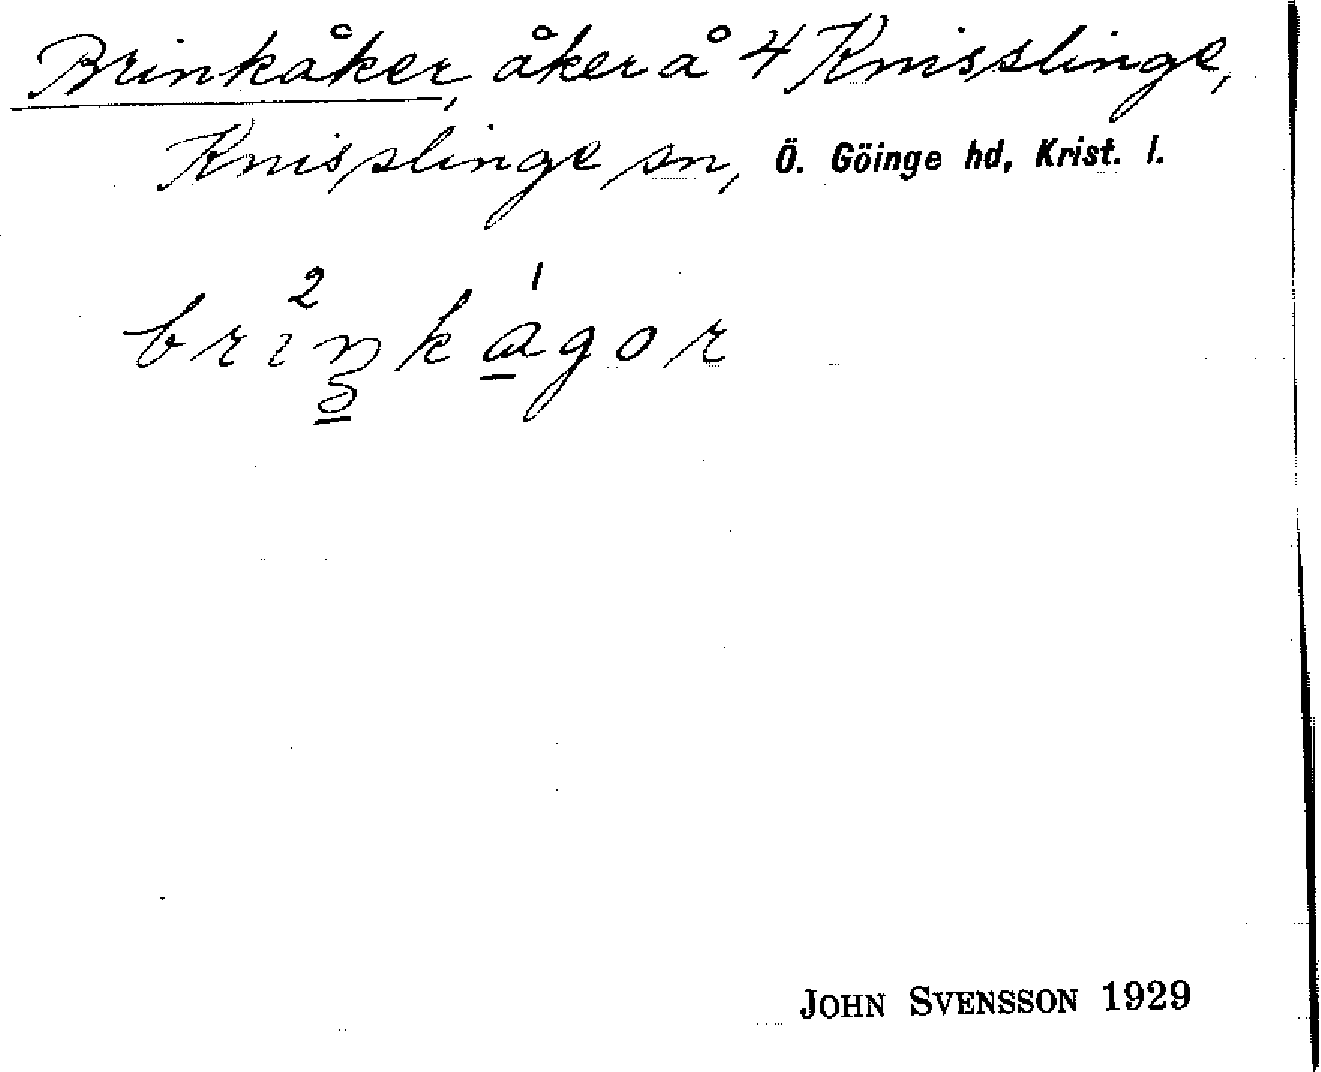 Brinkåker, åker å 4 Knisslinge,
Knisslinge sn, Ö. Göinge hd, Krist. l.
2 1
brinkagor
JOHN SVENSSON 1929